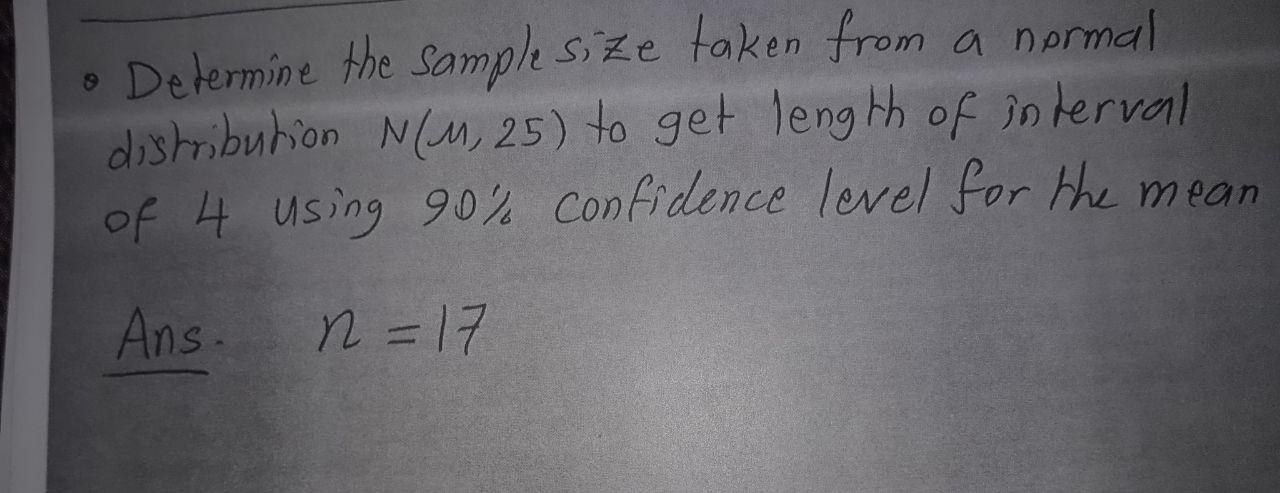 • Determine the sample size taken from a normal
distribution N(μ, 25) to get length of interval
of 4 using 90% confidence level for the mean
Ans. n = 17